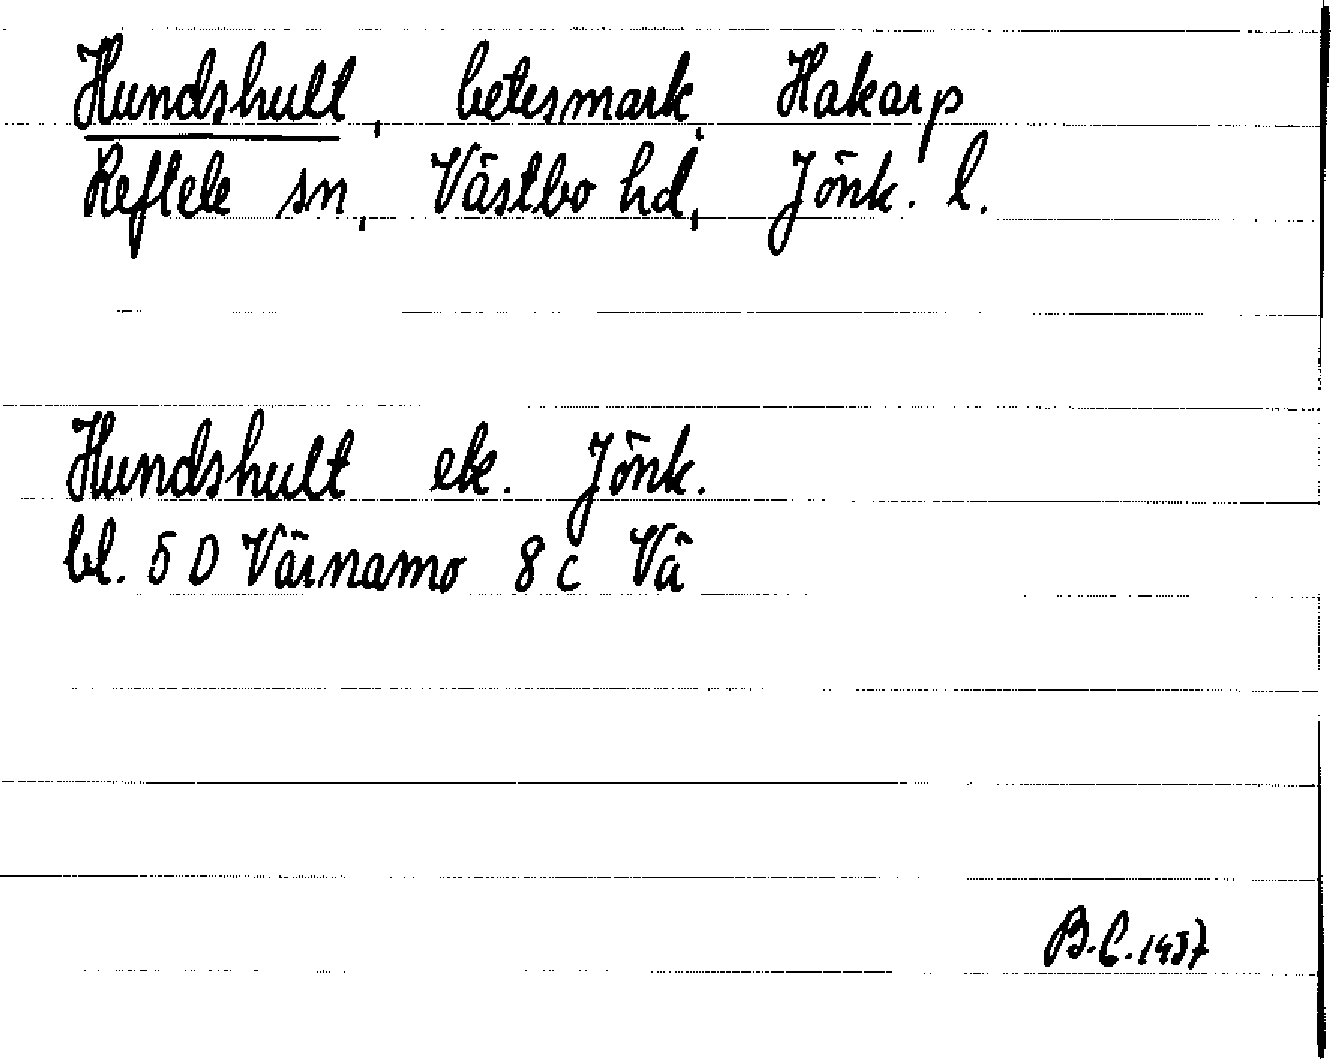 Hundshult, betesmark, Hakarp
Reftele sn, Västbo hd, Jönk. l.
Hundshult ek. Jönk.
bl. 5 D Värnamo 8 c Vä
B.C. 1937